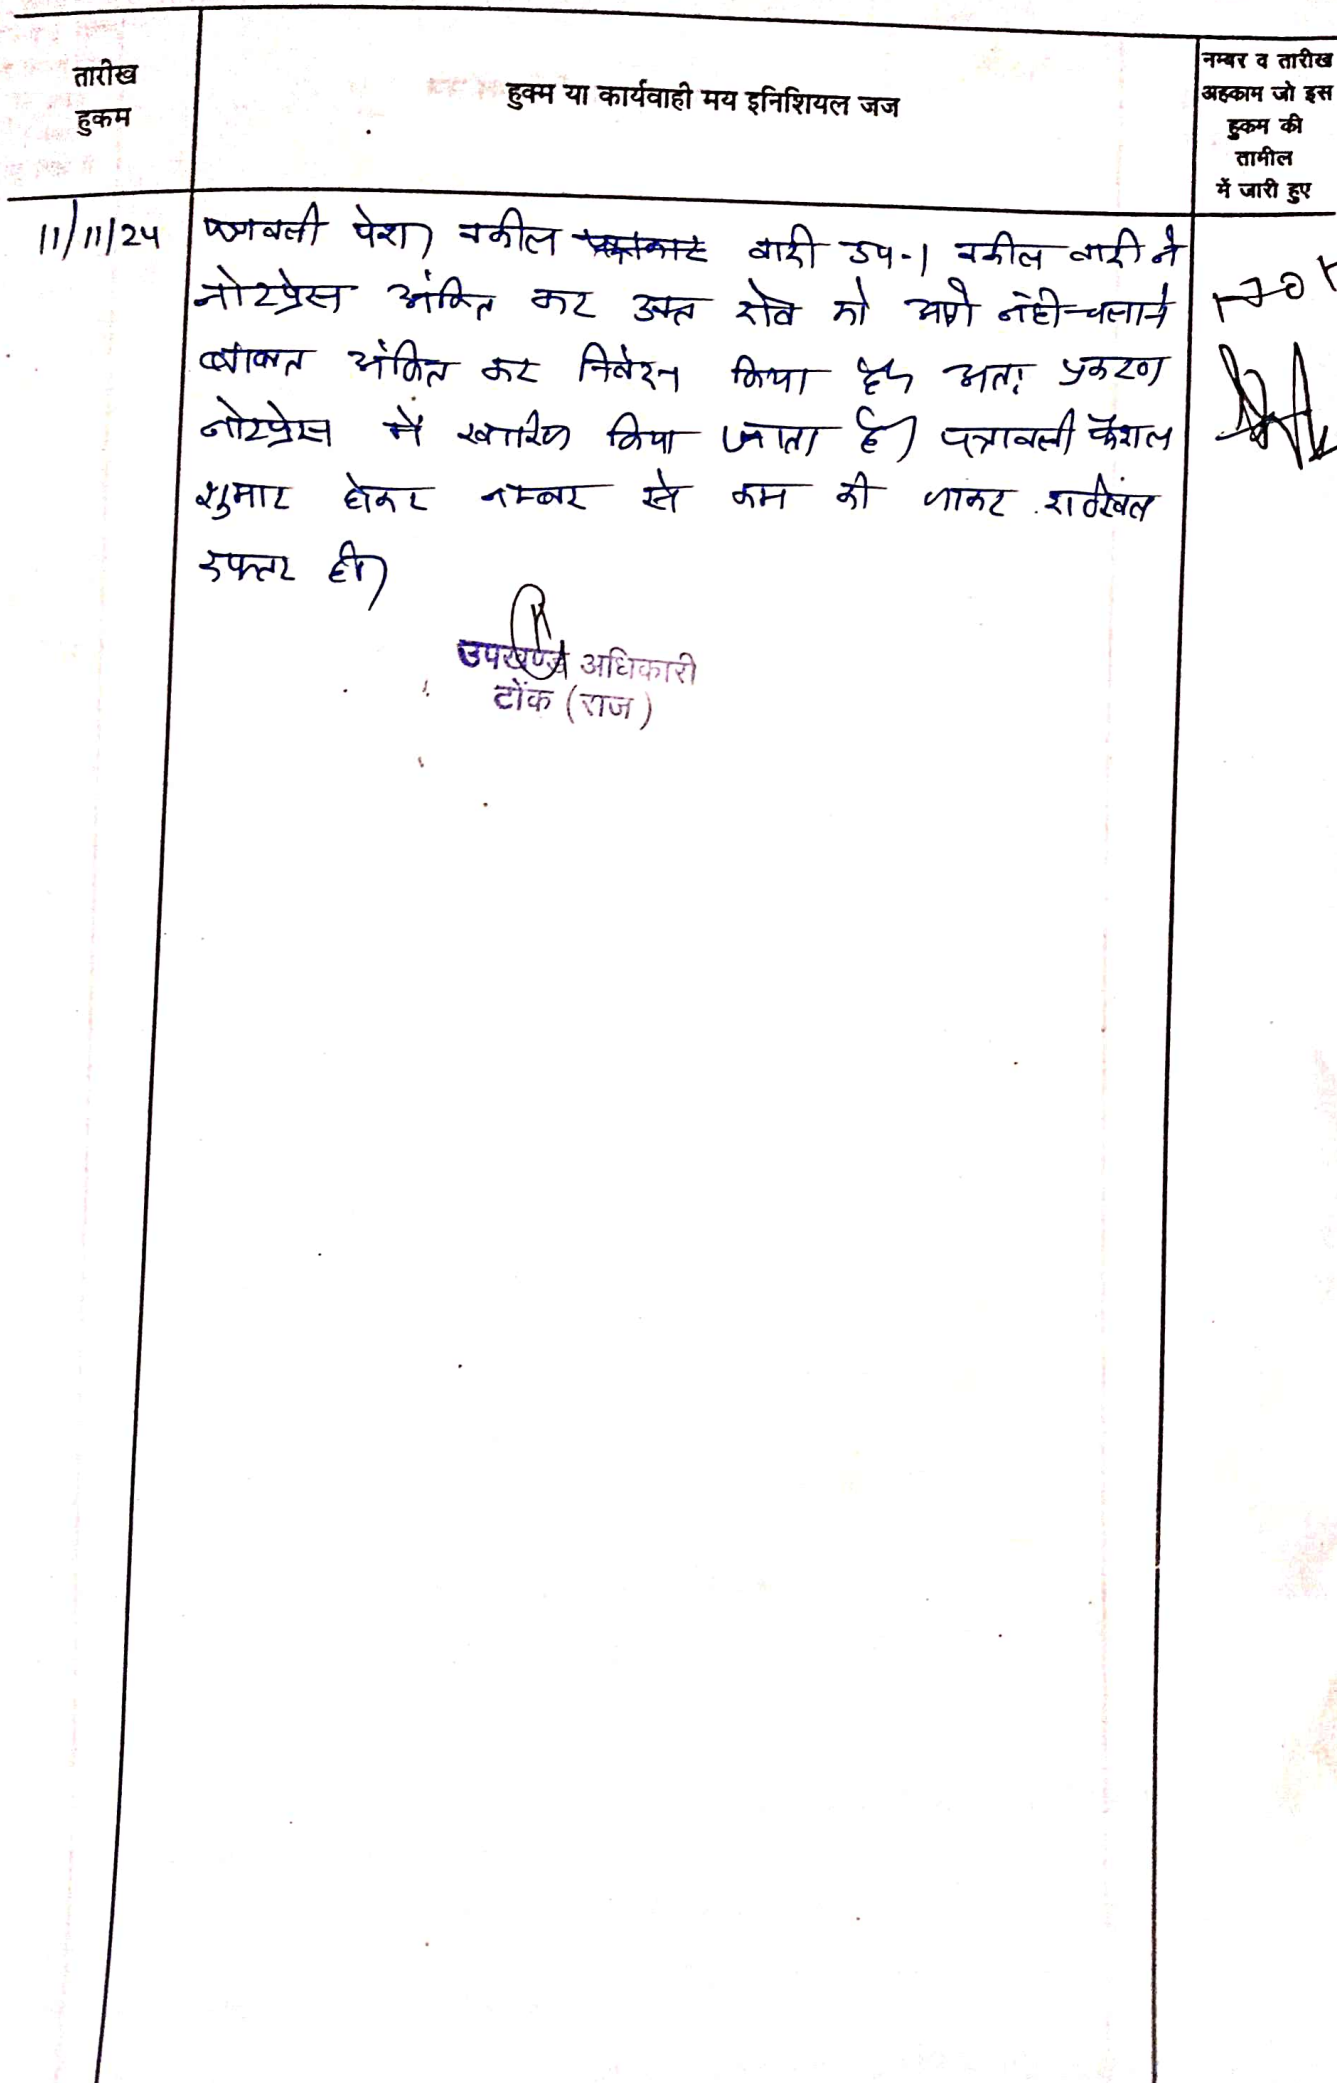 तारीख
हुकम
हुक्म या कार्यवाही मय इनिशियल जज
नम्बर व तारीख
अहकाम जो इस
हुकम की
तामील
में जारी हुए
11/11/24
पत्रावली पेश। वकील वादी उप-। वकील वादी ने
नोटप्रेस अंकित कर उक्त दावे को आगे नही चलाने
बाबत अंकित कर निवेदन किया है। अतः प्रकरण
नोटप्रेस में खारिज किया जाता है। पत्रावली फैशल
शुमार होकर नम्बर से कम की जाकर दाखिल
दफ्तर हो।
उपखण्ड अधिकारी
टोंक (राज)